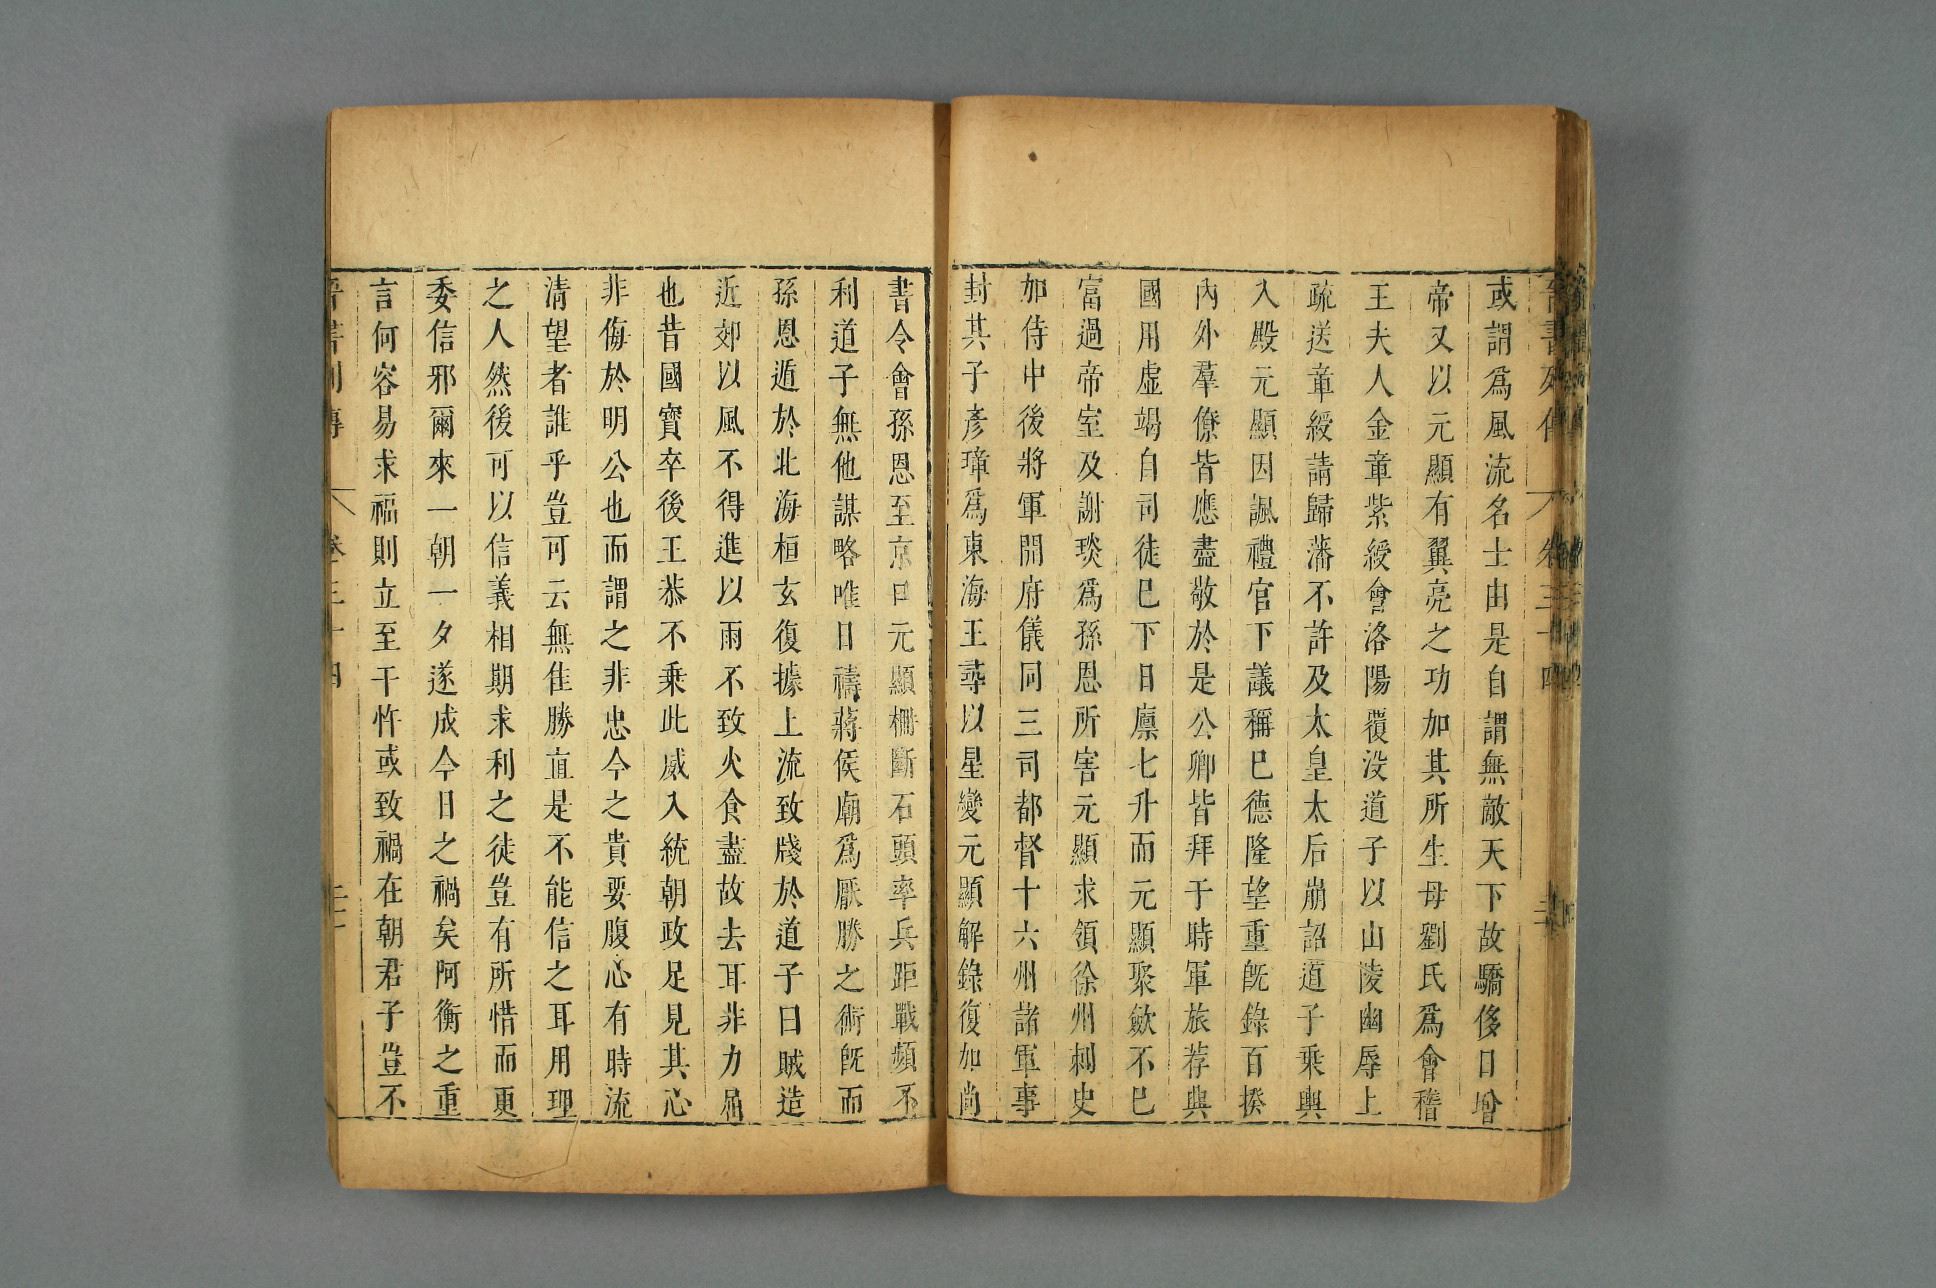 晉書列傳 卷三十四
或謂爲風流名士由是自謂無敵天下故驕侈日增
帝又以元顯有翼亮之功加其所生母劉氏爲會稽
王夫人金章紫綬會洛陽覆没道子以山陵幽辱上
疏送章綬請歸藩不許及太皇太后崩詔道子乗輿
入殿元顯因諷禮官下議稱已德隆望重旣錄百揆
內外羣僚皆應盡敬於是公卿皆拜于時軍旅荐興
國用虛竭自司徒已下日廪七升而元顯聚歛不已
富過帝室及謝琰爲孫恩所害元顯求領徐州刺史
加侍中後將軍開府儀同三司都督十六州諸軍事
封其子彥璋爲東海王尋以星變元顯解錄復加尙
書令會孫恩至京口元顯柵斷石頭率兵距戰頻不
利道子無他謀略唯日禱蔣侯廟爲厭勝之術旣而
孫恩遁於北海桓玄復據上流致牋於道子曰賊造
近郊以風不得進以雨不致火食盡故去耳非力屈
也昔國寶卒後王恭不乗此威入統朝政足見其心
非侮於明公也而謂之非忠今之貴要腹心有時流
清望者誰乎豈可云無佳勝直是不能信之耳用理
之人然後可以信義相期求利之徒豈有所惜而更
委信邪爾來一朝一夕遂成今日之禍矣阿衡之重
言何容易求福則立至干忤或致禍在朝君子豈不
晉書列傳 卷三十四